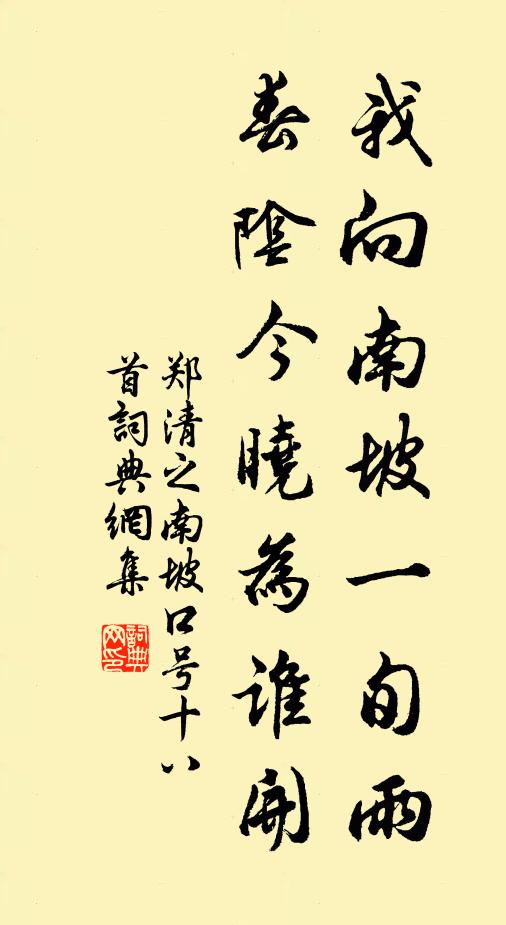 我向南坡一旬雨
春陰今曉為誰開
郑清之南坡口号十八
首詞典網集
詞典
网印